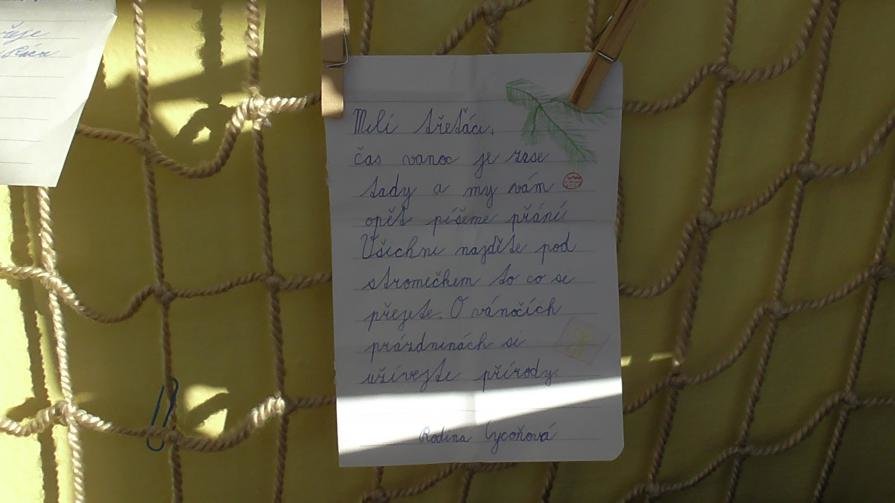 řeje
Milí třeťáci,
čas vanoc je zase
tady a my vám
opět píšeme přání
Všichni najděte pod
stromečkem to co se
přejete. O vánočích
prázdninách si
užívejte přírody.
Rodina